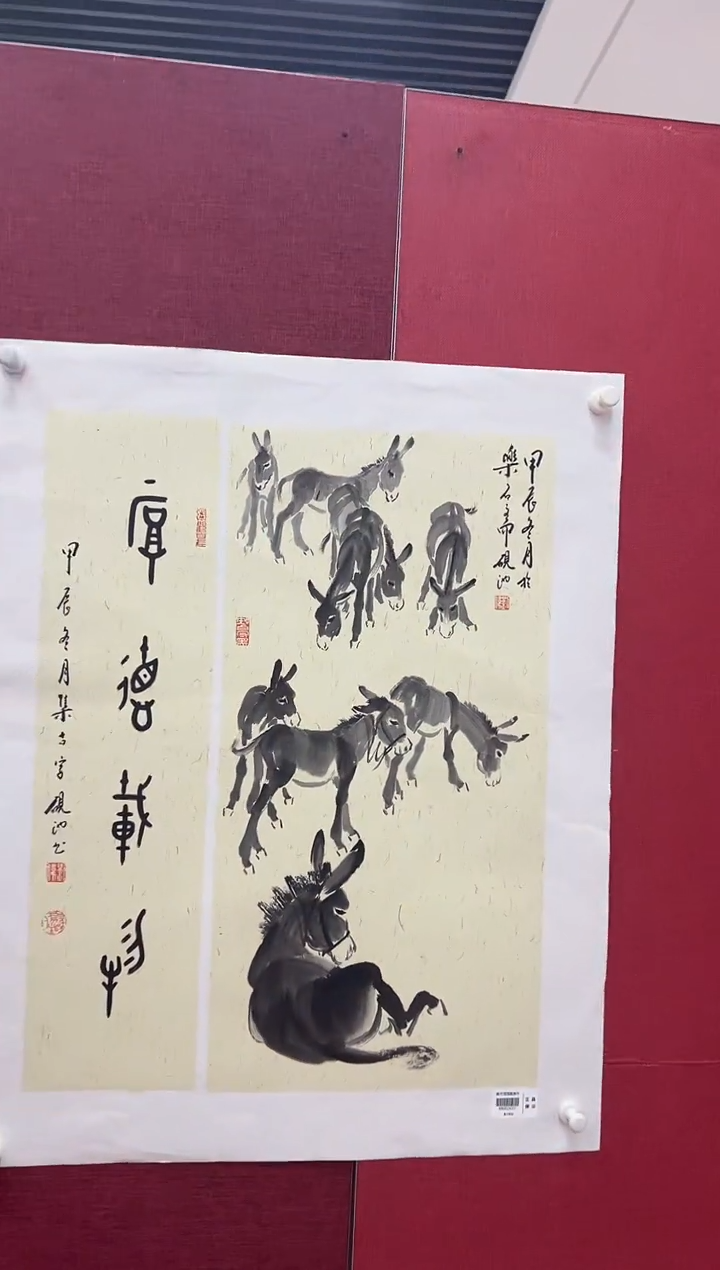 甲辰冬月於
樂石齋硯池
厚德載物
甲辰冬月集古字硯池书